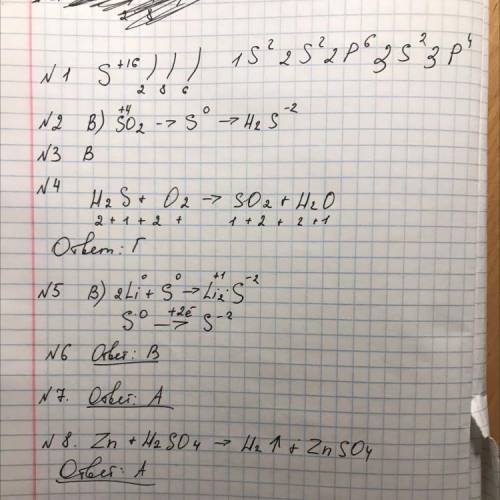 N1 S +16 ) ) ) 1S² 2S² 2P⁶ 3S² 3P⁴
2 8 6
N2 В) S⁺⁴O₂ → S⁰ → H₂S⁻²
N3 В
N4 H₂S + O₂ → SO₂ + H₂O
2+1+2+ 1+2+2+1
Ответ: Г
N5 В) 2Li⁰ + S⁰ → Li₂⁺¹S⁻²
S⁰ +2ē → S⁻²
N6 Ответ: В
N7. Ответ: А
N8. Zn + H₂SO₄ → H₂↑ + ZnSO₄
Ответ: А